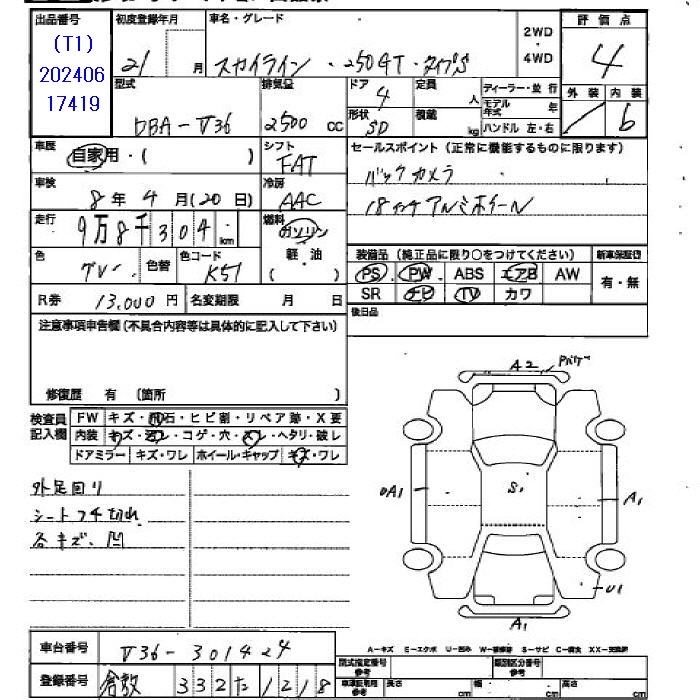 出品番号 初度登録年月 車名・グレード 2WD・4WD 評価点
(T1)
202406
17419
21 月 スカイライン・250GT・タイプS 4
型式 排気量 ドア 定員 ディーラー・並行 外装 内装
DBA-V36 2500 cc 4 人 モデル年式 年 b
形状 SD 積載 kg ハンドル 左・右
車歴 自家用・( ) シフト FAT セールスポイント(正常に機能するものに限ります)
バックカメラ
車検 8年 4月(20日) 冷房 AAC
18インチアルミホイール
走行 9万8千304 km 燃料 ガソリン 軽・油 ( )
色 グレー 色替 色コード K51
装備品(純正品に限り○をつけてください) 新車保証書
PS PW ABS エアB AW 有・無
SR ナビ TV カワ
R券 13,000円 名変期限 月 日
後日品
注意事項申告欄(不具合内容等は具体的に記入して下さい)
修復歴 有 (箇所 )
検査員記入欄 FW キズ・飛石・ヒビ割・リペア跡・X要
内装 キズ・汚レ・コゲ・穴・スレ・ヘタリ・破レ
ドアミラー キズ・ワレ ホイール・キャップ キズ・ワレ
外足回り
シートフチ切れ
各キズ、凹
A2 Pバゲ
A1
S1
A1
U1
A1
車台番号 V36-301424
登録番号 倉敷 332 た 1218
A-キズ E-エクボ U-凹み W-補修跡 S-サビ C-腐食 XX-交換済
型式指定番号 参考 類別区分番号 参考
車庫証明用 参考 長さ cm 幅 cm 高さ cm